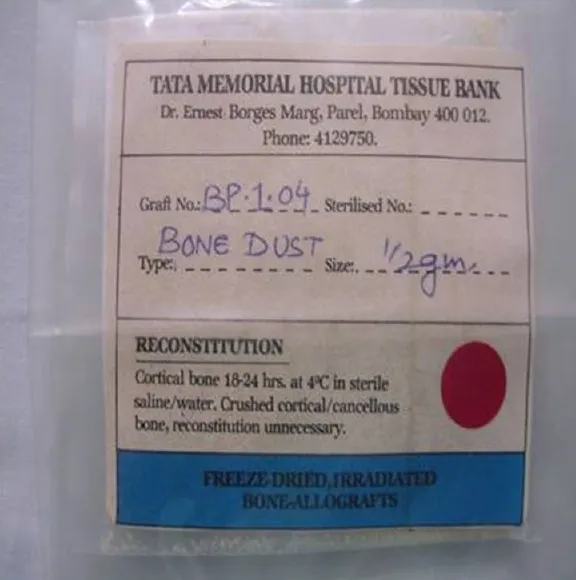 TATA MEMORIAL HOSPITAL TISSUE BANK
Dr. Ernest Borges Marg, Parel, Bombay 400 012.
Phone: 4129750.
Graft No.: BP.1.04 Sterilised No.:
Type: BONE DUST Size: 1/2gm.
RECONSTITUTION
Cortical bone 18-24 hrs. at 4ºC in sterile
saline/water. Crushed cortical/cancellous
bone, reconstitution unnecessary.
FREEZE-DRIED, IRRADIATED
BONE-ALLOGRAFTS